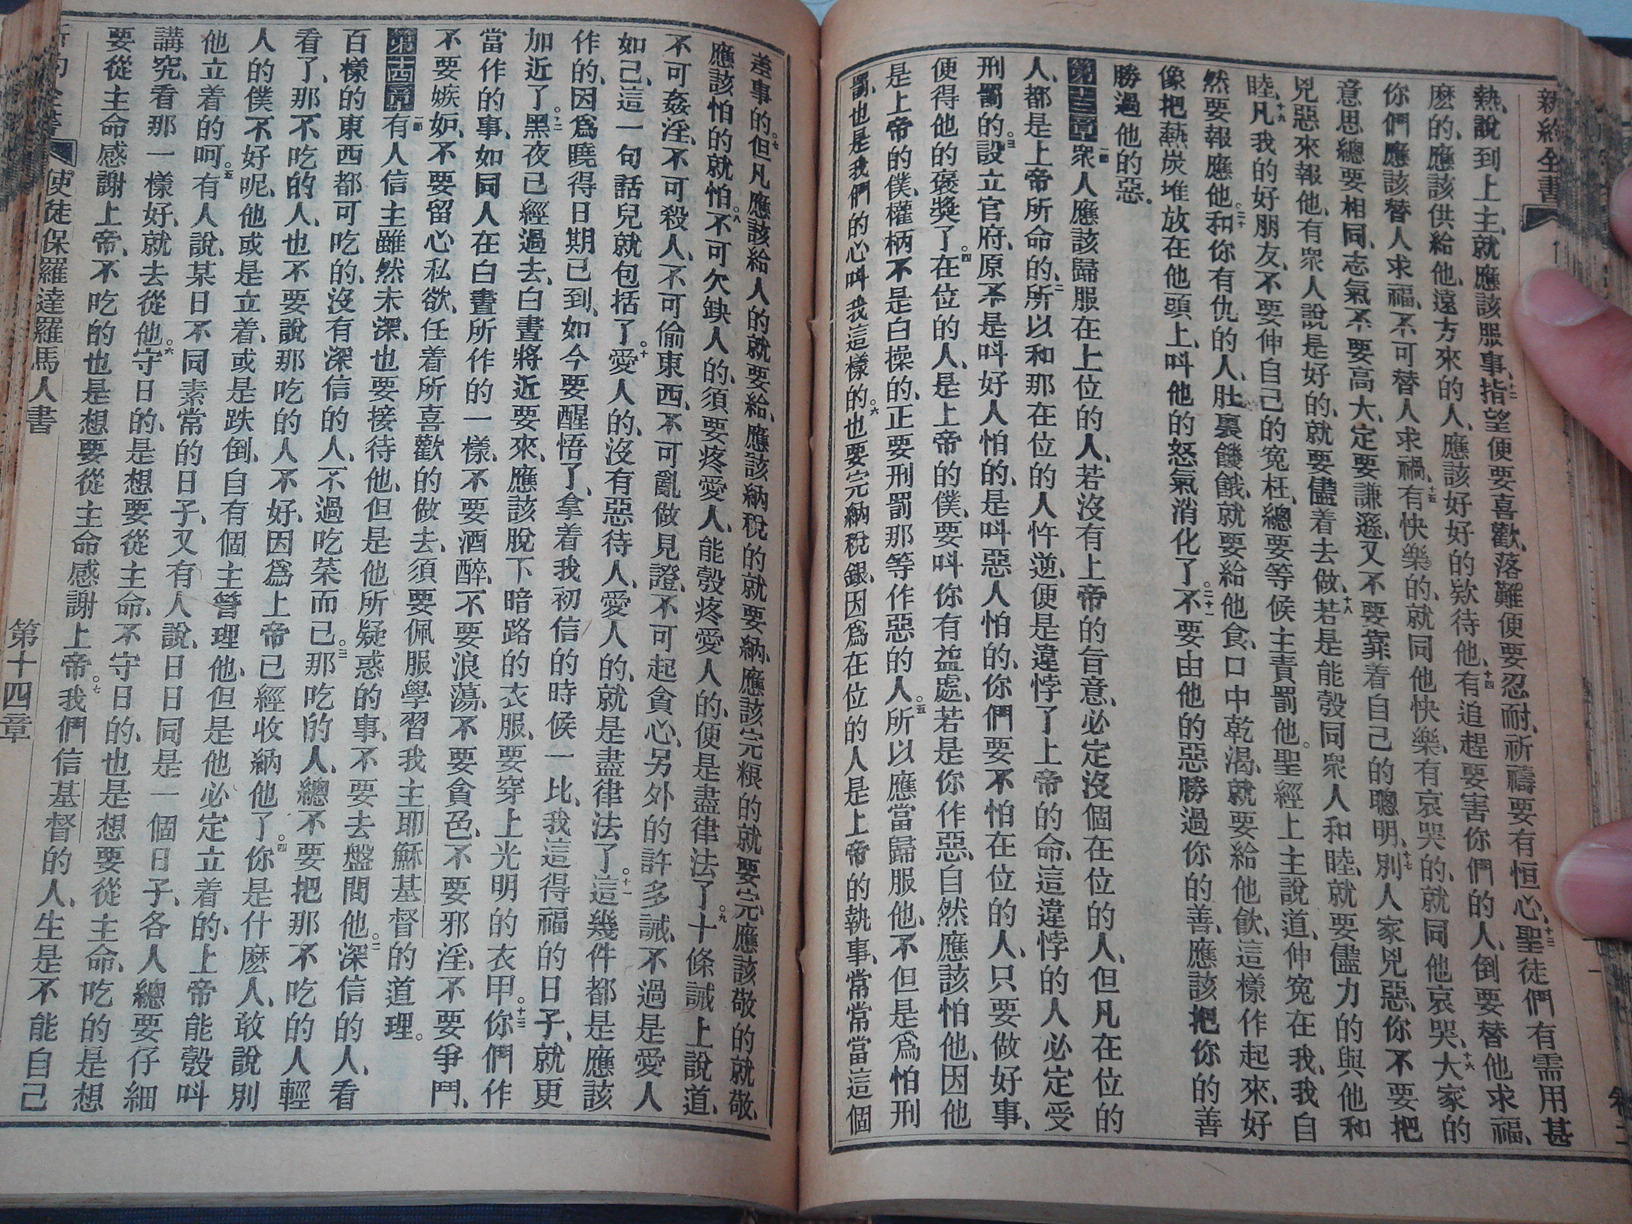 新約全書
熱、說到上主、就應該服事、十二指望便要喜歡、落難便要忍耐、祈禱要有恒心、十三聖徒們有需用甚
麽的、應該供給他、遠方來的人、應該好好的欵待他、十四有追趕要害你們的人、倒要替他求福、
你們應該替人求福、不可替人求禍、十五有快樂的、就同他快樂、有哀哭的、就同他哀哭、十六大家的
意思總要相同、志氣不要高大、定要謙遜、又不要靠着自己的聰明、十七別人家兇惡、你不要把
兇惡來報他、有衆人說是好的、就要儘着去做、十八若是能彀同衆人和睦、就要儘力的與他和
睦、十九凡我的好朋友、不要伸自己的寃枉、總要等候主責罰他。聖經上主說道、伸寃在我、我自
然要報應他、二十和你有仇的人、肚裏饑餓、就要給他食、口中乾渴、就要給他飲、這樣作起來、好
像把熱炭堆放在他頭上、叫他的怒氣消化了。二十一不要由他的惡勝過你的善、應該把你的善
勝過他的惡。
第十三章一節衆人應該歸服在上位的人、若沒有上帝的旨意、必定沒個在位的人、但凡在位的
人、都是上帝所命的、二所以和那在位的人忤逆、便是違悖了上帝的命、這違悖的人必定受
刑罰的。三設立官府、原不是叫好人怕的、是叫惡人怕的、你們要不怕在位的人、只要做好事、
便得他的褒獎了。四在位的人、是上帝的僕、要叫你有益處、若是你作惡、自然應該怕他、因他
是上帝的僕、權柄不是白操的、正要刑罰那等作惡的人。五所以應當歸服他、不但是爲怕刑
罰、也是我們的心叫我這樣的。六也要完納稅銀、因爲在位的人是上帝的執事、常常當這個
差事的。七但凡應該給人的就要給、應該納稅的就要納、應該完粮的就要完、應該敬的就敬、
應該怕的就怕、八不可欠缺人的、須要疼愛人、能彀疼愛人的、便是盡律法了。九十條誡上說道、
不可姦淫、不可殺人、不可偷東西、不可亂做見證、不可起貪心、另外的許多誡、不過是愛人
如己、這一句話兒就包括了。十愛人的、沒有惡待人、愛人的、就是盡律法了。十一這幾件都是應該
作的、因爲曉得日期已到、如今要醒悟了、拿着我初信的時候一比、我這得福的日子、就更
加近了。十二黑夜已經過去、白晝將近要來、應該脫下暗路的衣服、要穿上光明的衣甲。十三你們作
當作的事、如同人在白晝所作的一樣、不要酒醉、不要浪蕩、不要貪色、不要邪淫、不要爭鬥、
不要嫉妬、不要留心私欲、任着所喜歡的做去、須要佩服學習我主耶穌基督的道理。
第十四章一節有人信主雖然未深、也要接待他、但是他所疑惑的事、不要去盤問他。二深信的人、看
百樣的東西都可吃的、沒有深信的人、不過吃菜而已。三那吃的人、總不要把那不吃的人輕
看了、那不吃的人、也不要說那吃的人不好、因爲上帝已經收納他了。四你是什麽人、敢說別
人的僕不好呢、他或是立着、或是跌倒、自有個主管理他、但是他必定立着的、上帝能彀叫
他立着的呵。五有人說、某日不同素常的日子、又有人說、日日同是一個日子、各人總要仔細
講究、看那一樣好、就去從他。六守日的、是想要從主命、不守日的、也是想要從主命、吃的是想
要從主命感謝上帝、不吃的也是想要從主命感謝上帝。七我們信基督的人、生是不能自己
使徒保羅達羅馬人書
第十四章